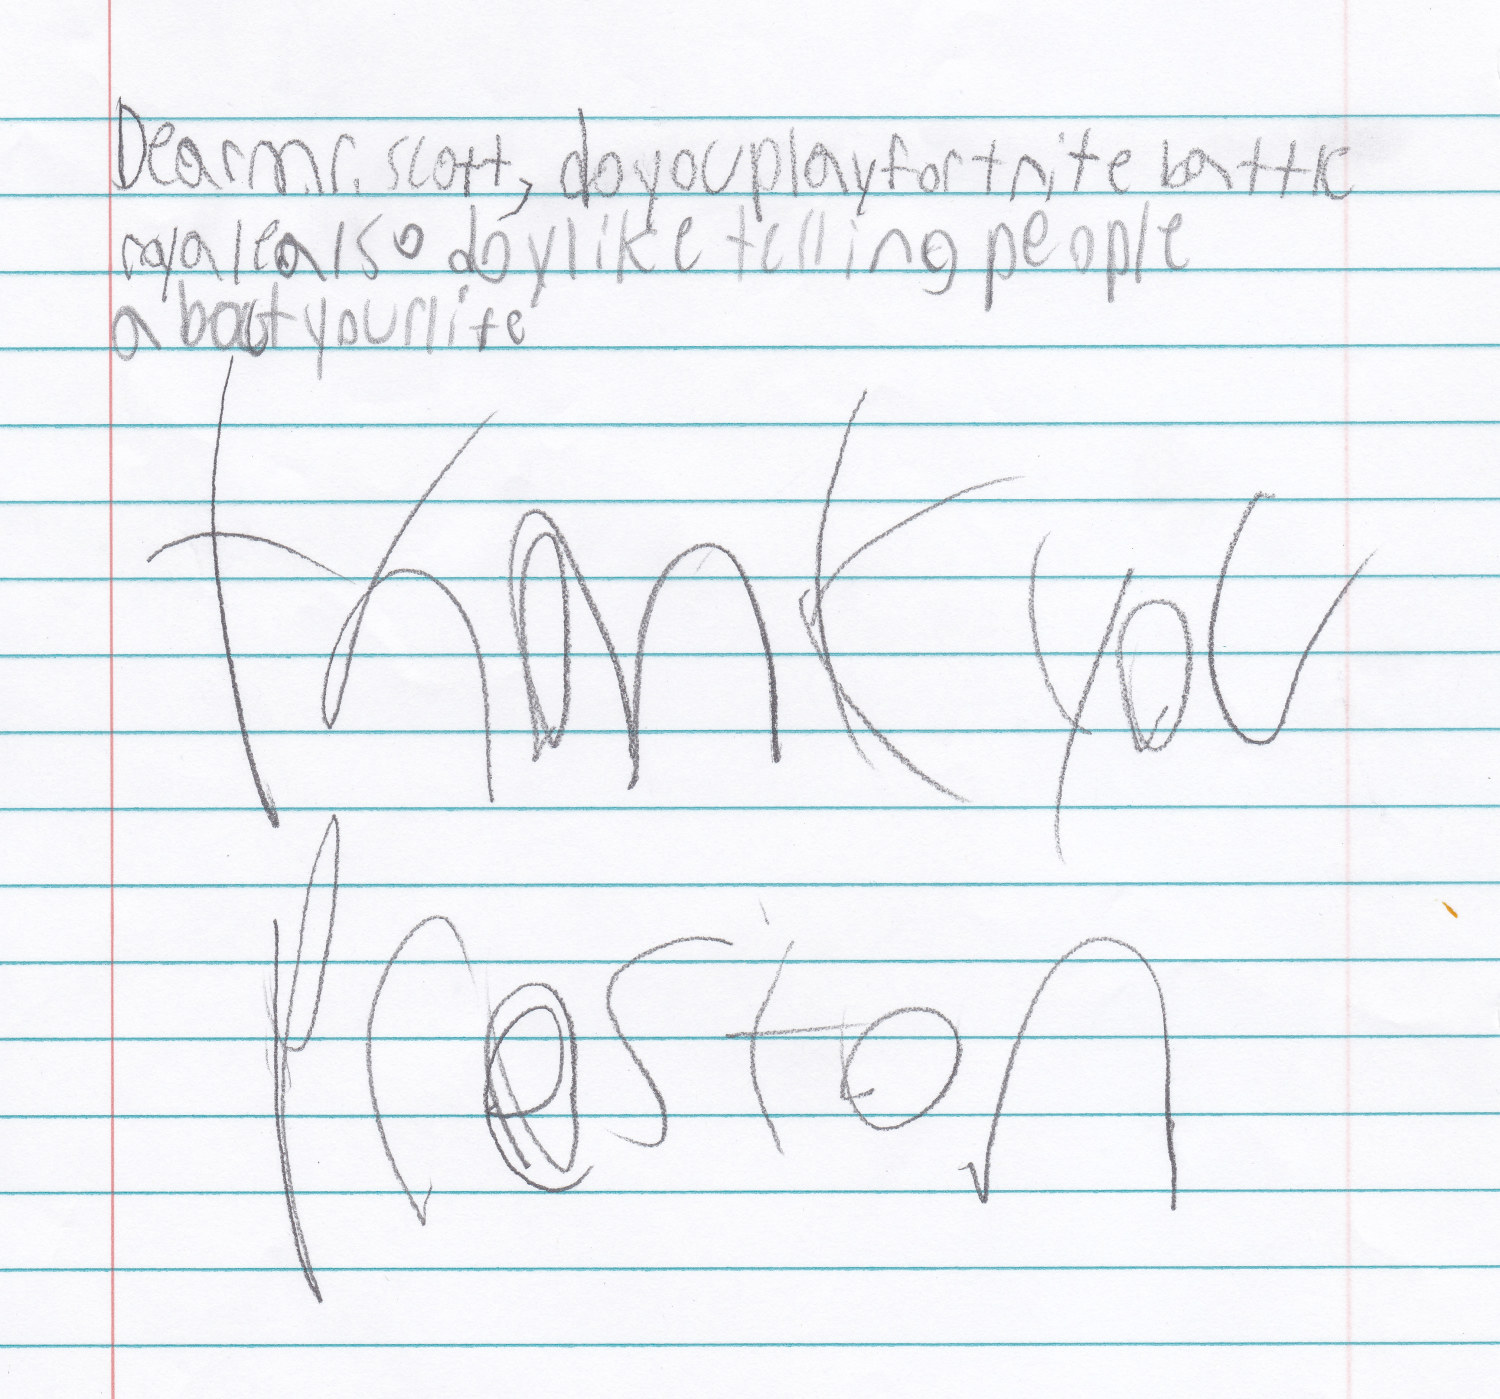 Dear mr. scott, do you play fortnite battle
royale also do y like telling people
a bout your life
thank you
Preston